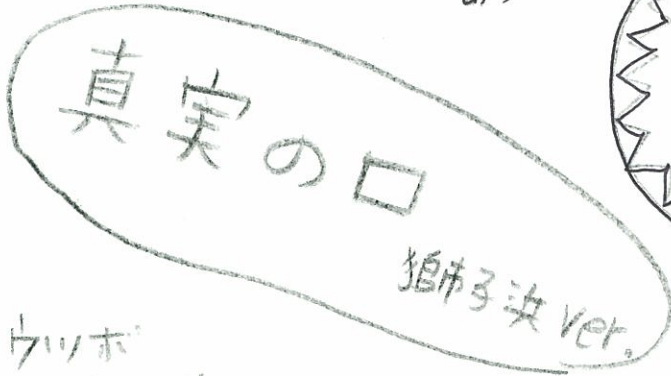 真実の口
獅子浜 ver.
ウツボ